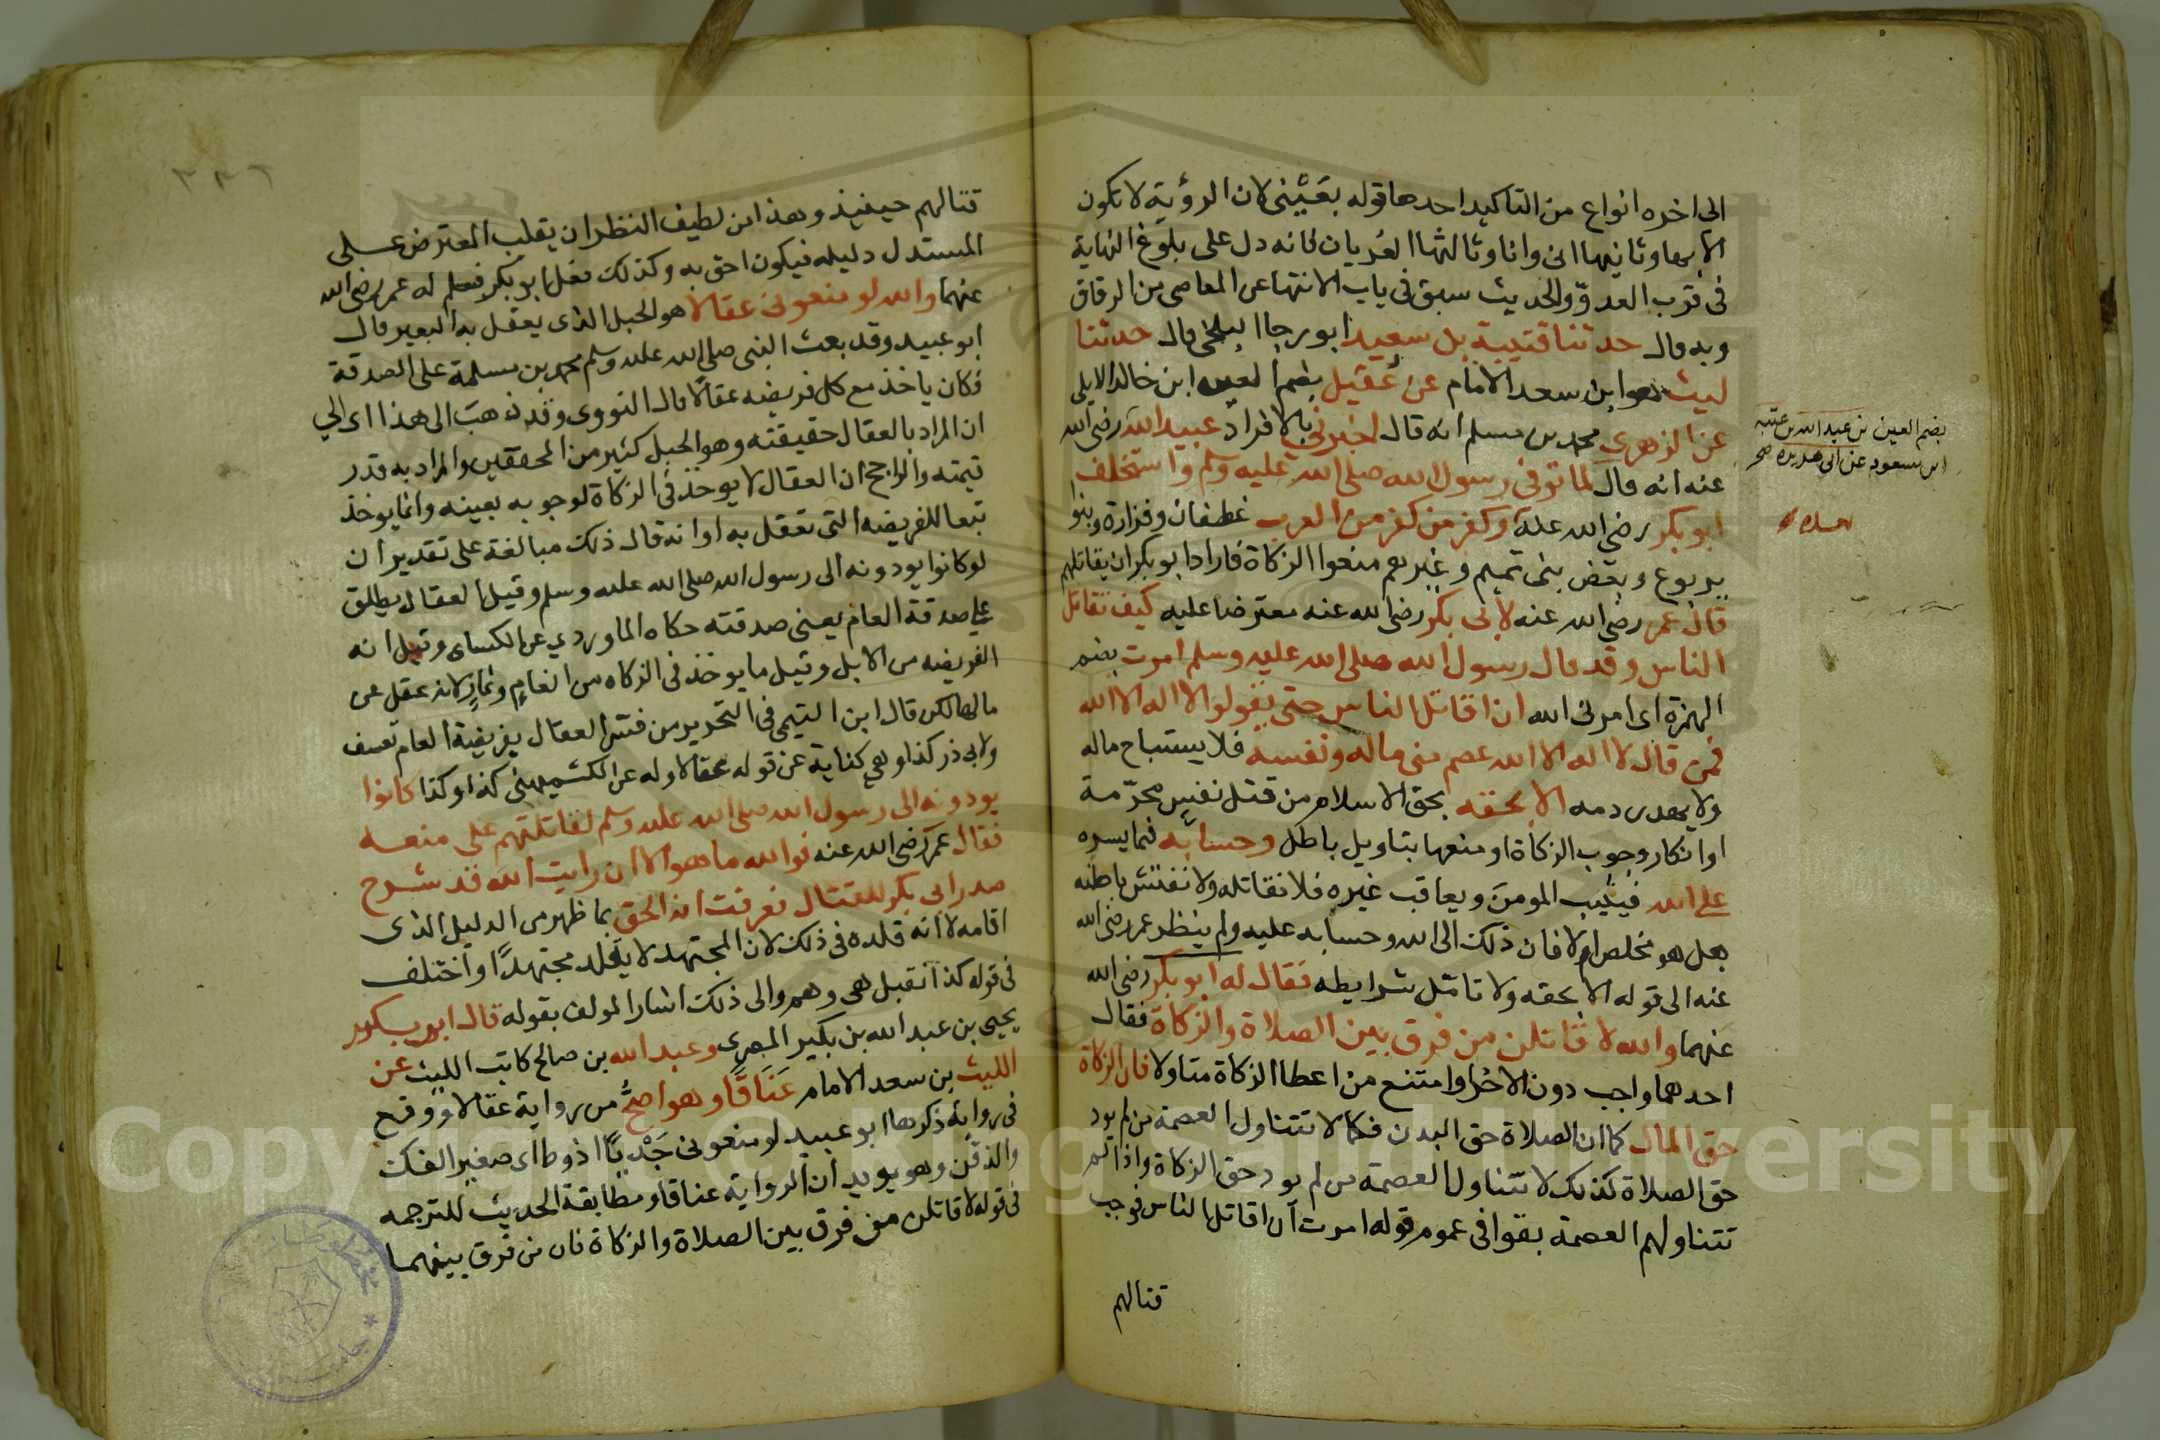 الى اخره انواع من التاكيد احدها قوله بعَيْنى لان الرؤية لا تكون
الا بها وثانيها انى وانا وثالثها العُريان فانه دل على بلوغ النهاية
فى قرب العدوّ والحديث سبق فى باب الانتها عن المعاصى من الرقاق
وبه قال حدثنا قتيبة بن سعيد ابو رجا البلخى قال حدثنا
ليث هو ابن سعد الامام عن عُقيل بضم العين ابن خالد الايلى
عن الزهرى محمد بن مسلم انه قال اخبرنى بالافراد عبيد الله رضى الله
عنه انه قال لما توفى رسول الله صلى الله عليه وسلم واستخلف
ابو بكر رضى الله عنه وكفر من كفر من العرب غطفان وفزارة وبنوا
يربوع وبعض بنى تميم وغيرهم منعوا الزكاة فاراد ابو بكر ان يقاتلهم
قال عمر رضى الله عنه لابى بكر رضى الله عنه معترضا عليه كيف تقاتل
الناس وقد قال رسول الله صلى الله عليه وسلم امرت بضم
الهمزة اى امرنى الله ان اقاتل الناس حتى يقولوا لا اله الا الله
فمن قال لا اله الا الله عصم منى ماله ونفسه فلا يستباح ماله
ولا يهدر دمه الا بحقه بحق الاسلام من قتل نفس محرّمة
او انكار وجوب الزكاة او منعها بتاويل باطل وحسابه فيما يسره
على الله فيثيب المومن ويعاقب غيره فلا نقاتله ولا نفتش باطنه
هل هو مخلص ام لا فان ذلك الى الله وحسابه عليه ولم ينظر عمر رضى الله
عنه الى قوله الا بحقه ولا تامّل شرايطه فقال له ابو بكر رضى الله
عنهما والله لاقاتلن من فرق بين الصلاة والزكاة فقال
احدهما واجب دون الاخر او امتنع من اعطا الزكاة متاولا فان الزكاة
حق المال كما ان الصلاة حق البدن فكما لا تتناول العصمة من لم يود
حق الصلاة كذلك لا تتناول العصمة من لم يود حق الزكاة واذا لم
تتناولهم العصمة بقوا فى عموم قوله امرت ان اقاتل الناس فوجب
قتالهم
بضم العين بن عبد الله بن عتبه
ابن مسعود عن ابى هريره صح
٣٣٦
قتالهم حينيذ وهذا من لطيف النظر ان يقلب المعترض على
المستدل دليله فيكون احق به وكذلك فعل ابو بكر فسلم له عمر رضى الله
عنهما والله لو منعونى عقالا هو الحبل الذى يعقل به البعير قال
ابو عبيد وقد بعث النبى صلى الله عليه وسلم محمد بن مسلمة على الصدقة
فكان ياخذ مع كل فريضه عقالا قال النووى وقد ذهب الى هذا اى الى
ان المراد بالعقال حقيقته وهو الحبل كثير من المحققين والمراد به قدر
قيمته والراجح ان العقال لا يوخذ فى الزكاة لوجوبه بعينه وانما يوخذ
تبعا للفريضه التى تعقل به او انه قال ذلك مبالغة على تقدير ان
لو كانوا يودونه الى رسول الله صلى الله عليه وسلم وقيل العقال يطلق
على صدقة العام يعنى صدقته حكاه الماوردي عن الكسائ وقيل انه
الفريضه من الابل وقيل ما يوخذ فى الزكاه من انعام وثمار لانه عقل عن
مالكها لكن قال ابن التيمى فى التحرير من فسّر العقال بفريضة العام تعسف
ولابى ذر كذا وهى كناية عن قوله عقالا وله عن الكشميهنى كذا وكذا كانوا
يودونه الى رسول الله صلى الله عليه وسلم لقاتلتهم على منعه
فقال عمر رضى الله عنه فوالله ما هو الا ان رايت الله قد شرح
صدر ابى بكر للقتال فعرفت انه الحق بما ظهر من الدليل الذى
اقامه لا انه قلده فى ذلك لان المجتهد لا يقلد مجتهدًا واختلف
فى قوله كذا فقيل هى وهم والى ذلك اشار المولف بقوله قال ابن بكير
يحيى بن عبد الله بن بكير المصرى وعبد الله بن صالح كاتب الليث عن
الليث بن سعد الامام عَنَاقًا وهو اصحُّ من رواية عقالا ووقع
فى رواية ذكرها ابو عبيد لو منعونى جَدْيًا اذوط اى صغير الفك
والذقن وهو يويد ان الرواية عناقا ومطابقة الحديث للترجمه
فى قوله لاقاتلن من فرق بين الصلاة والزكاة فان من فرق بينهما
Copyright © King Saud University